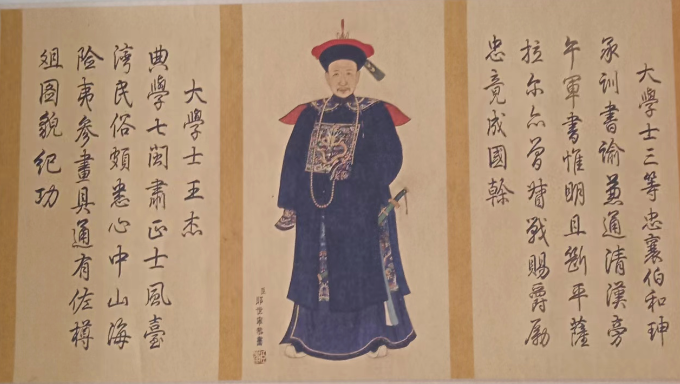 大學士三等忠襄伯和珅
承訓書諭兼通清漢旁
午軍書惟明且斷平薩
拉尔亦曾督戰賜爵勵
忠竟成國幹
大學士王杰
典學七閩肅正士風臺
灣民俗頗悉心中山海
险夷参畫具通有佐樽
俎图貌纪功